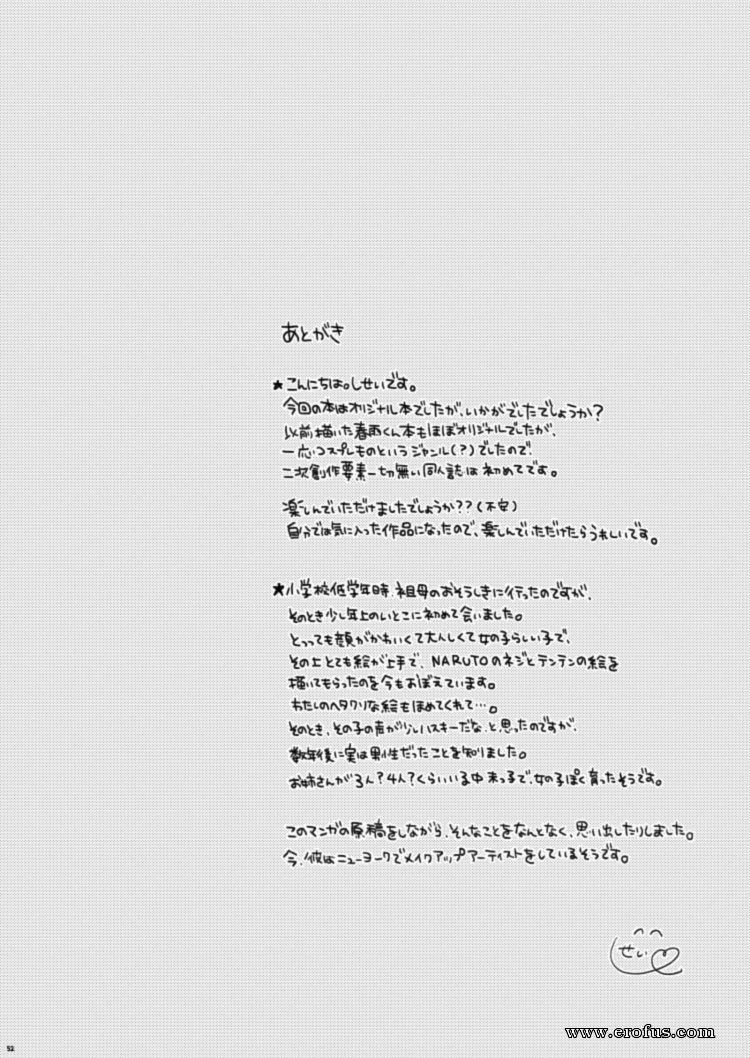 あとがき
★こんにちは。しせいです。
今回の本はオリジナル本でしたが、いかがでしたでしょうか?
以前描いた春雨くん本もほぼオリジナルでしたが、
一応コスプレものというジャンル(?)でしたので、
二次創作要素一切無い同人誌は初めてです。
楽しんでいただけましたでしょうか??(不安)
自分では気に入った作品になったので、楽しんでいただけたらうれしいです。
★小学校低学年時、祖母のおそうしきに行ったのですが、
そのとき少し年上のいとこに初めて会いました。
とっっても顔がかわいくて大人しくて女の子らしい子で、
その上とても絵が上手で、NARUTOのネジとテンテンの絵を
描いてもらったのを今もおぼえています。
わたしのヘタクソな絵もほめてくれて…。
そのとき、その子の声が少しハスキーだな、と思ったのですが、
数年後に実は男性だったことを知りました。
お姉さんが3人?4人?くらいいる中末っ子で、女の子ぽく育ったそうです。
このマンガの原稿をしながら、そんなことをなんとなく、思い出したりしました。
今、彼はニューヨークでメイクアップアーティストをしているそうです。
せい
52
www.erofus.com